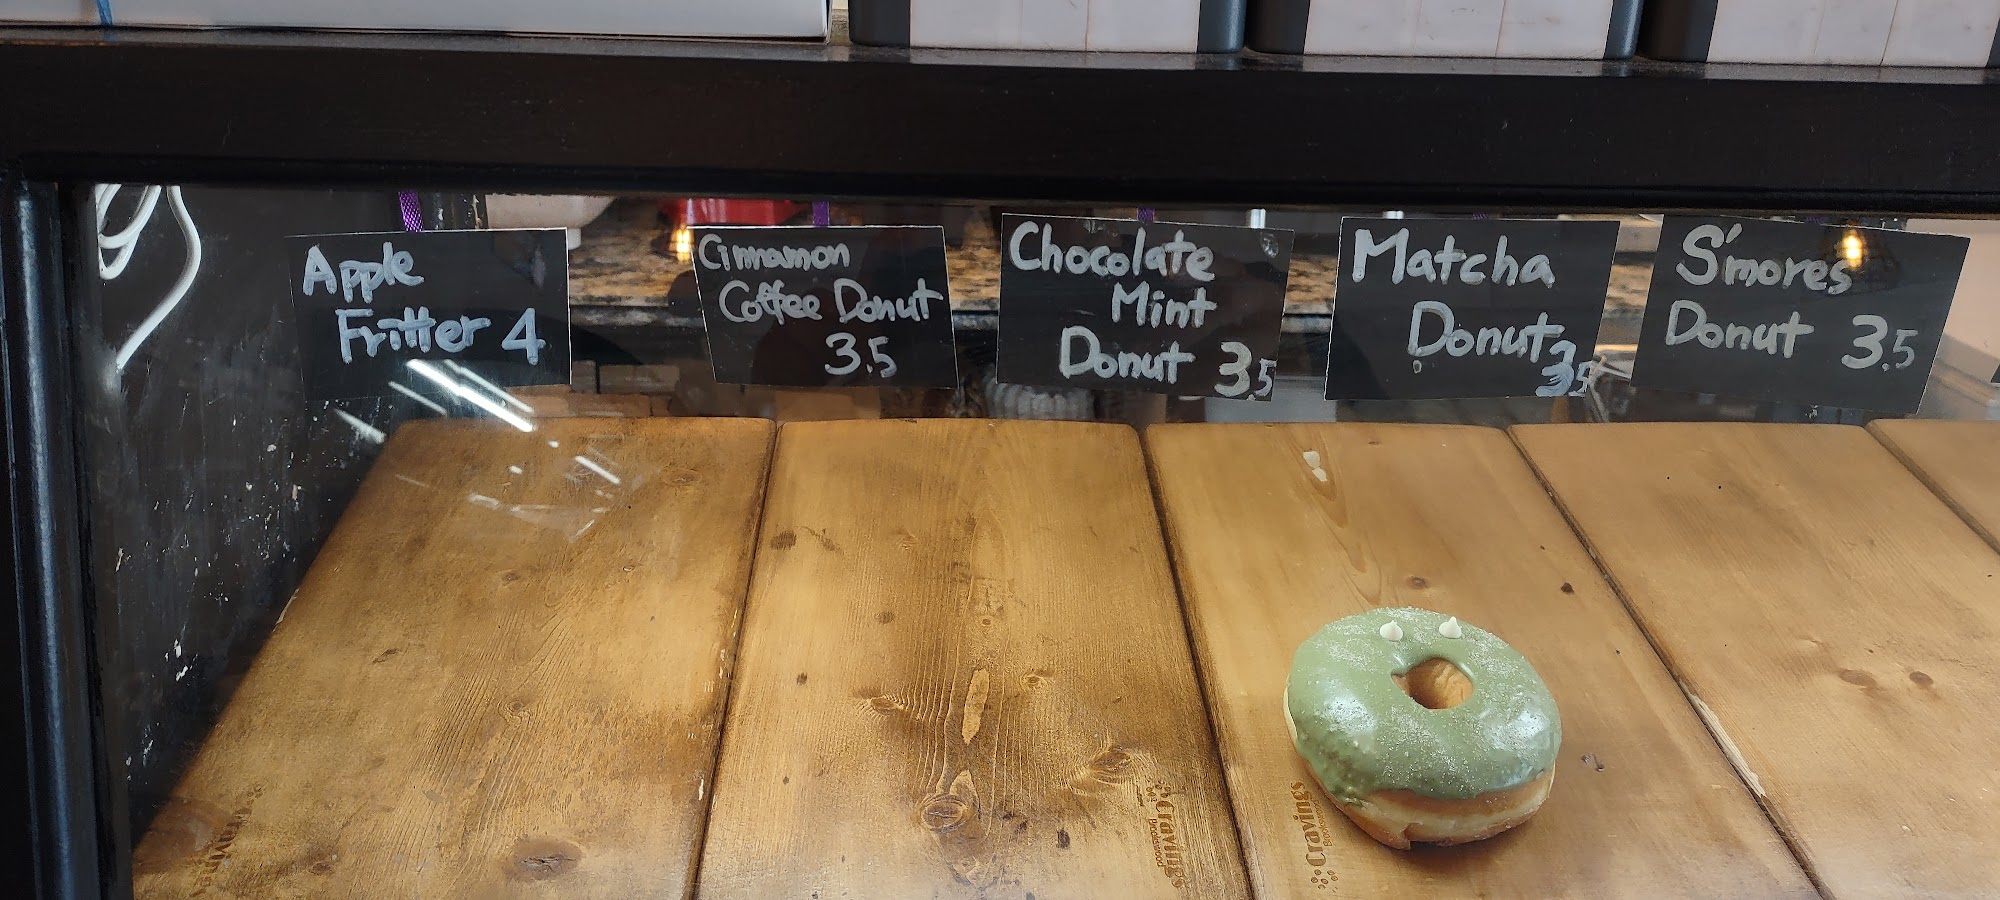 Apple
Fritter 4
Cinnamon
Coffee Donut
3.5
Chocolate
Mint
Donut 3.5
Matcha
Donut 3.5
S'mores
Donut 3.5
Cravings
Cravings
Cravings